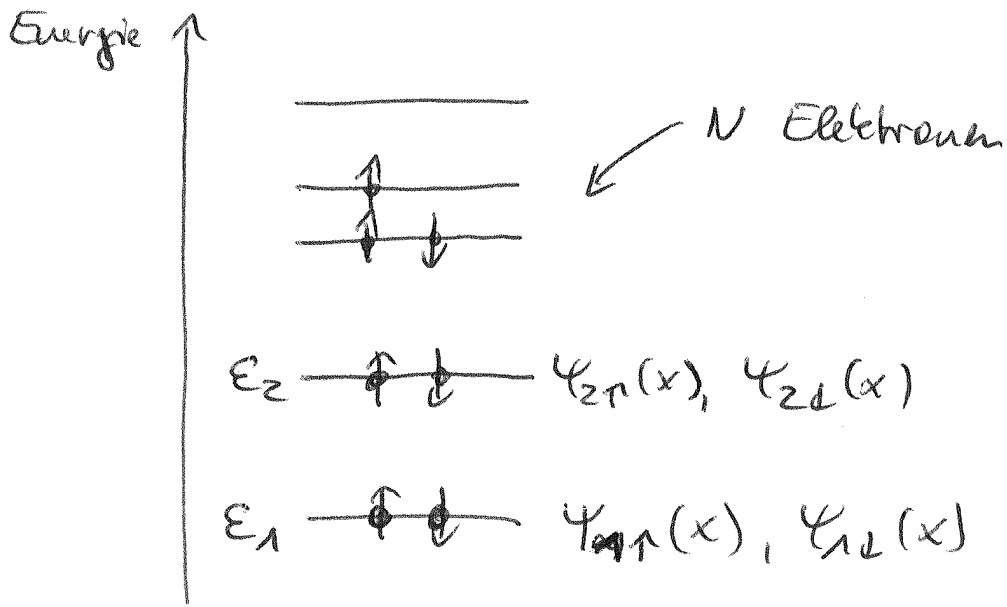 Energie
N Elektronen
ε₂ ψ₂↑(x), ψ₂↓(x)
ε₁ ψ₁↑(x), ψ₁↓(x)